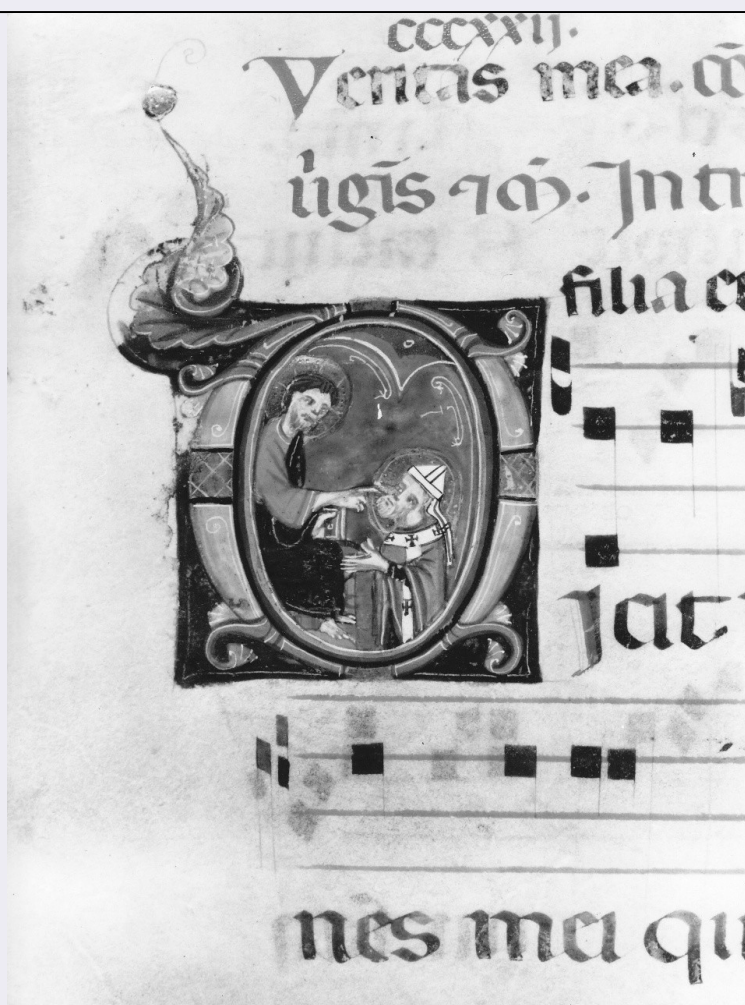 cccxxij.
Veritas mea. cō
ūgīs ⁊ cō. Intr
filia ce
Jat
nes mei qu